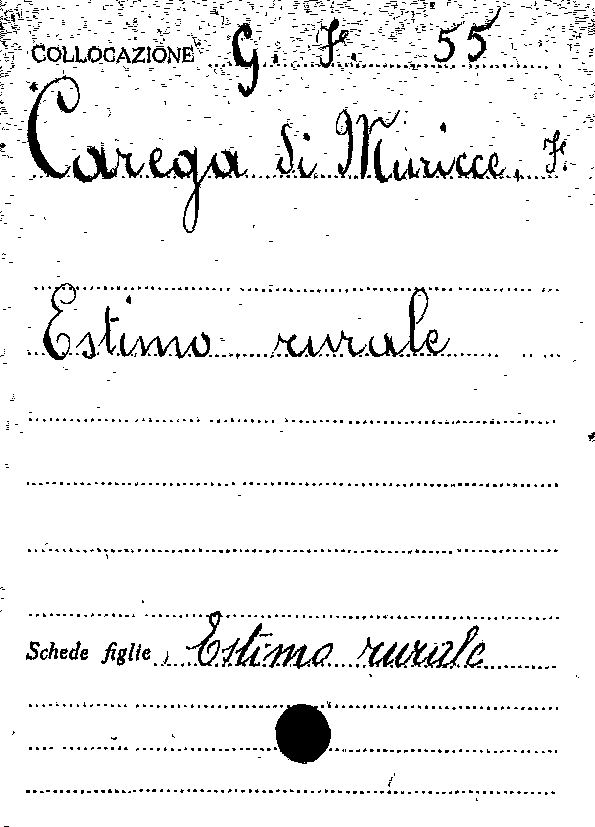 COLLOCAZIONE G. F. 55
Carega di Muricce, F.
Estimo rurale
Schede figlie Estimo rurale